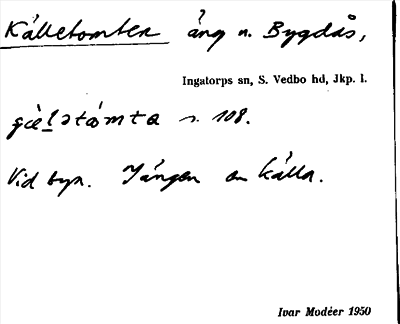 Källetomten äng n. Bygdås,
Ingatorps sn, S. Vedbo hd, Jkp. l.
s. 108.
Vid byn. I ängen en källa.
Ivar Modéer 1950